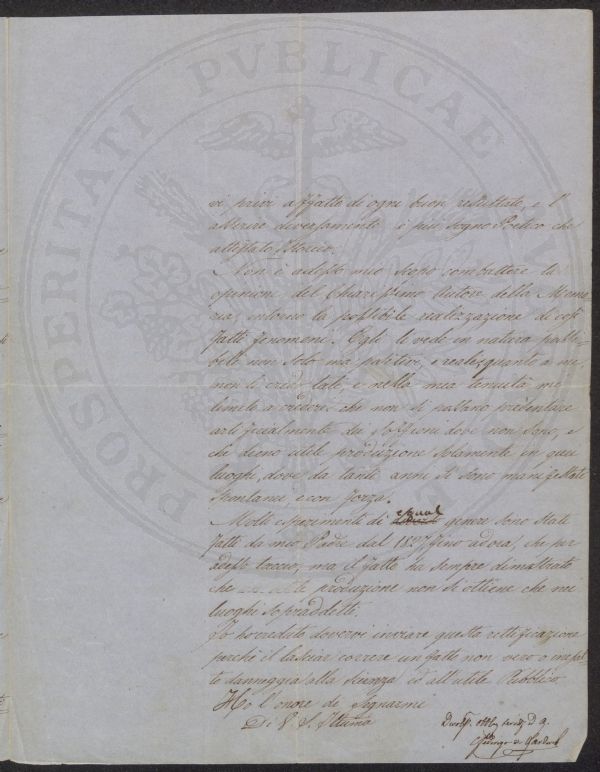 PROSPERITATI PVBLICAE AV
vi privi affatto di ogni buon resultato, e l'
asserire diversamente è più sogno Poetico che
attestato Storico.
Non è adesso mio scopo combattere le
opinioni del Chiarissimo Autore della Memo
ria, intorno la possibile realizzazione di così
fatti fenomeni. Egli li vede in natura possi-
bili non solo ma positivi, e reali, quanto a me,
non li credo tali, e nella mia tenuità mi
limito a credere che non si possano presentare
artificialmente dei Soffioni dove non sono, e
che dieno utile produzione solamente in quei
luoghi, dove da tanti anni si sono manifestati
Spontanei e con forza.
Molti esperimenti di egual genere sono stati
fatti da mio Padre dal 1827 fino adora, che per
adesso taccio, ma il fatto ha sempre dimostrato
che utile produzione non si ottiene che nei
luoghi sopraddetti.
Io ho creduto dovervi inviare questa rettificazione
perchè il lasciar correre un fatto non vero o inesat
to danneggia alla Scienza ed all'utile Pubblico
Ho l'onore di Segnarmi
Di V. S. Illma